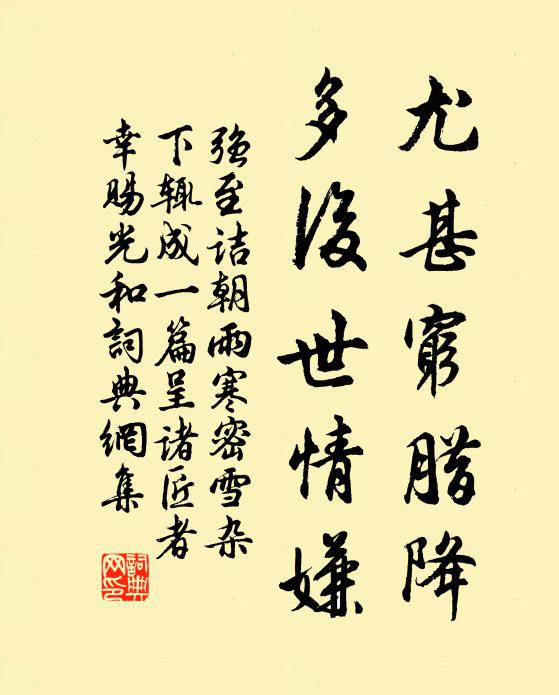 尤甚窮腊降
多後世情嫌
強至詰朝雨寒密雪杂
下輒成一篇呈诸匠者
幸賜光和詞典網集
詞典网印